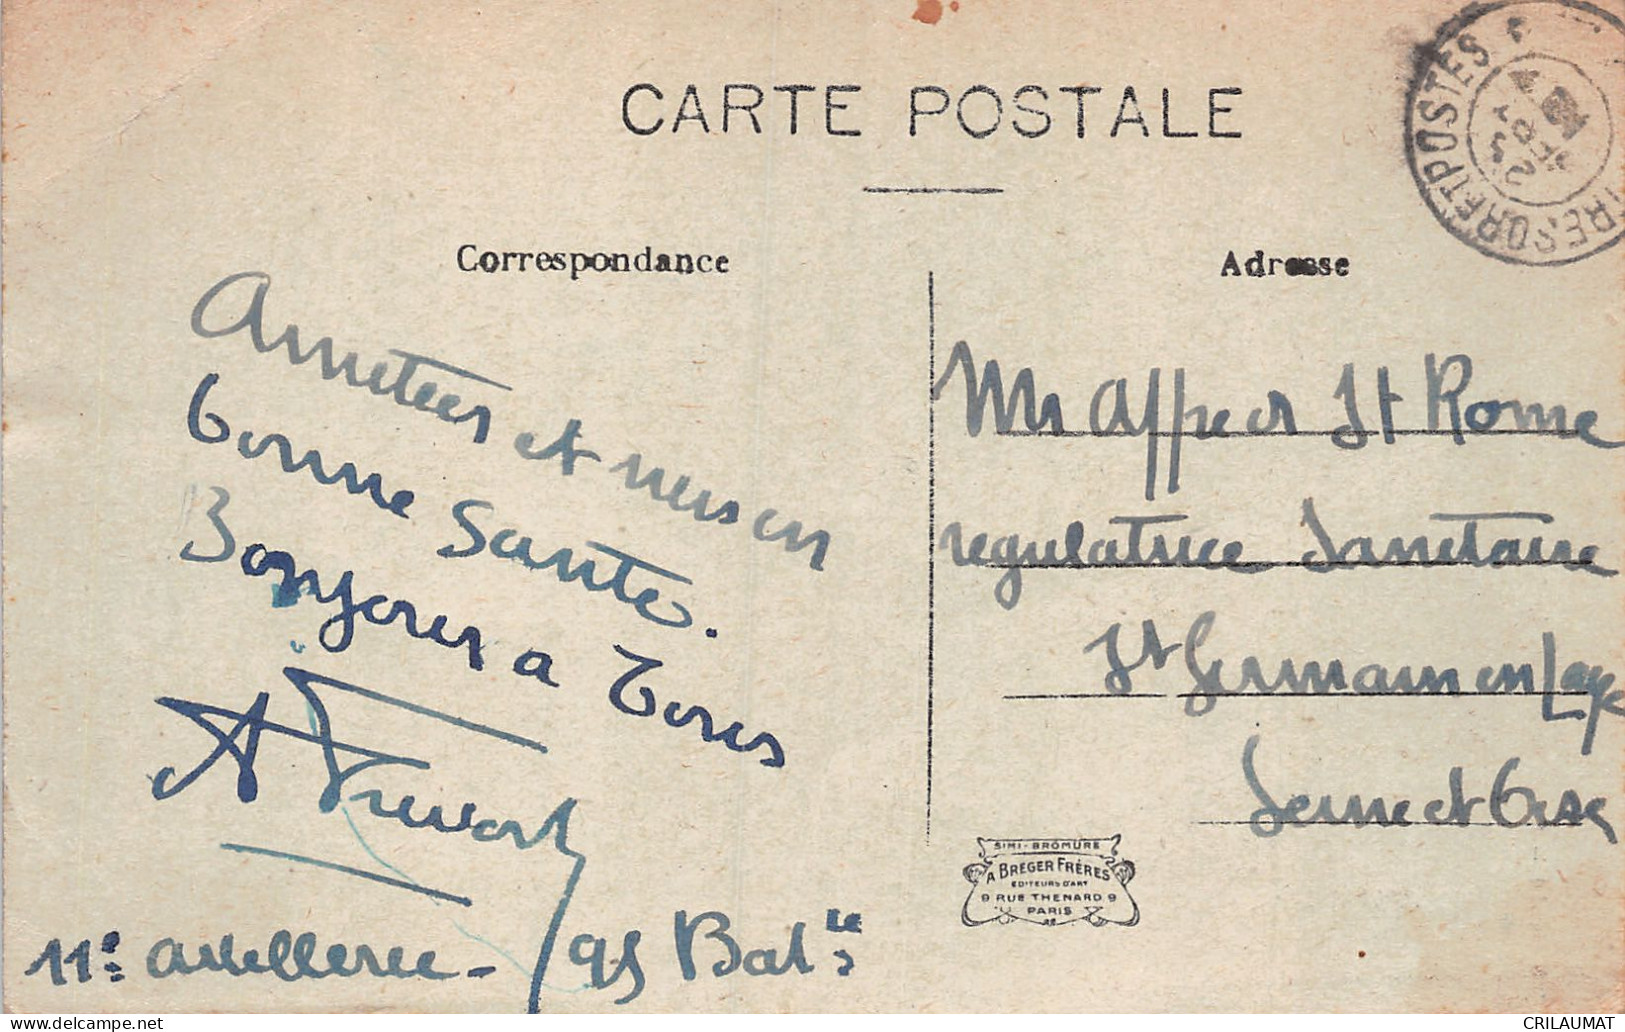 CARTE POSTALE
Correspondance
Amitées et suis en
bonne Santé.
Bonjours a Tous
A Prevost
11e artillerie - 95 Batie
Adresse
Mr Asppe St Rome
regulatrice Sanitaire
St Germain en Laye
Seine et Oise
TRESOR ET POSTES
SIMI-BROMURE
A BREGER FRÈRES
EDITEURS D'ART
9 RUE THENARD 9
PARIS
CRILAUMAT